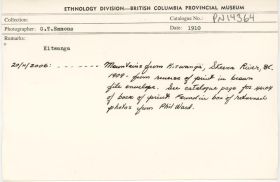 ETHNOLOGY DIVISION—BRITISH COLUMBIA PROVINCIAL MUSEUM
Collection Catalogue No.: PN14364
Photographer: G.T.Emmons Date: 1910
Remarks:
Kitwanga
20/11/2006: - - - - - - - Mountains from Kitwanga, Skeena River, BC.
1909 - from reverse of print in brown
file envelope. See catalogue page for xerox
of back of print. Found in box of returned
photos from Phil Ward.